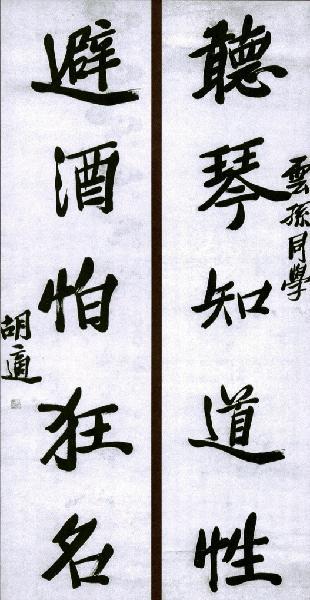 聽琴知道性
雲孫同學
避酒怕狂名
胡適